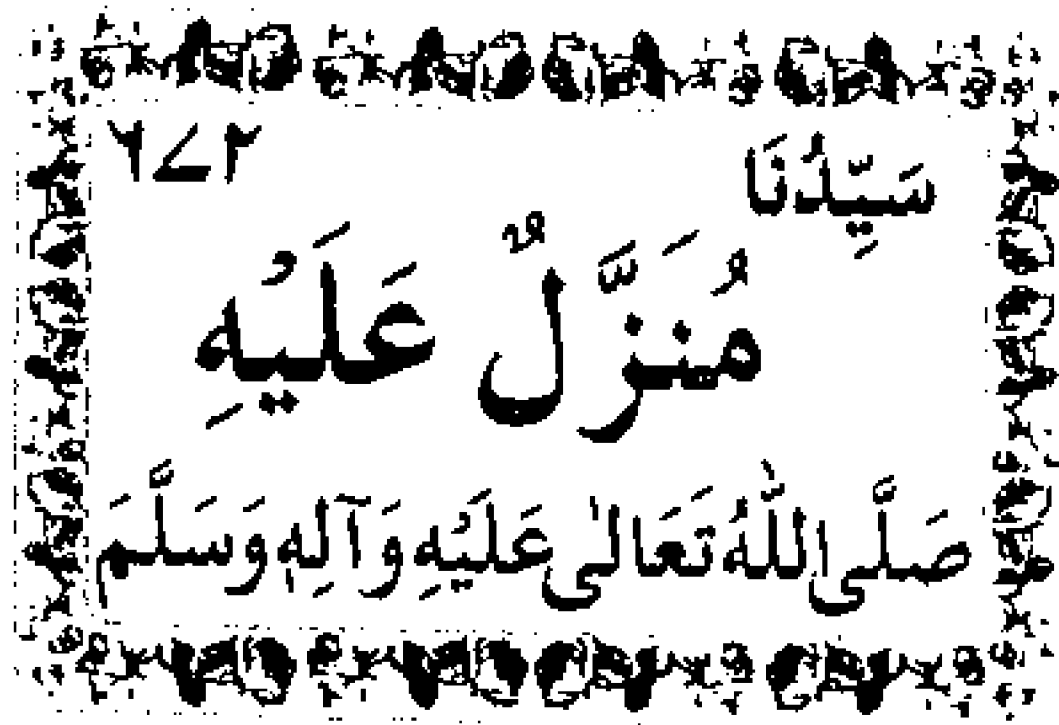 سَيِّدُنَا ۶۷۲
مُنَزَّلٌ عَلَيْهِ
صَلَّى اللّٰهُ تَعَالٰى عَلَيْهِ وَآلِهٖ وَسَلَّمَ